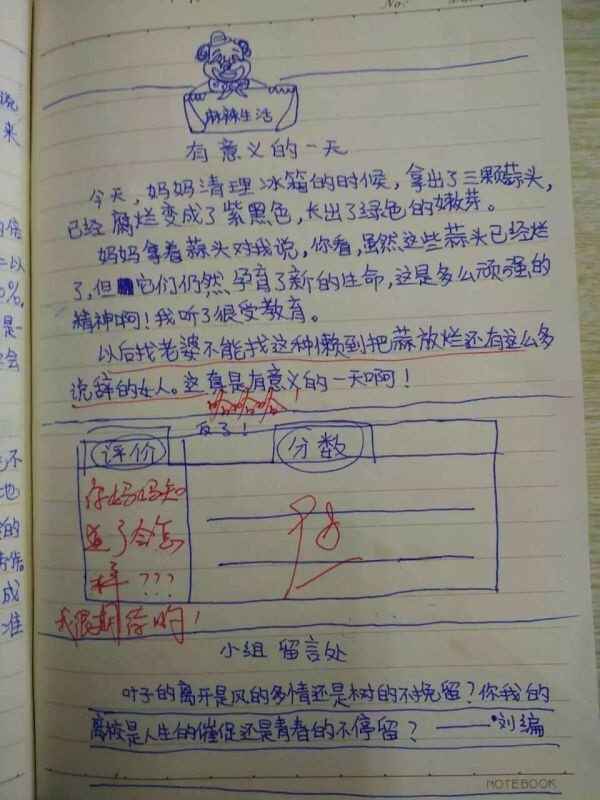 No:
麻辣生活
有意义的一天
今天，妈妈清理冰箱的时候，拿出了三颗蒜头，
已经腐烂变成了紫黑色，长出了绿色的嫩芽。
妈妈拿着蒜头对我说，你看，虽然这些蒜头已经烂
了，但它们仍然孕育了新的生命，这是多么顽强的
精神啊！我听了很受教育。
以后找老婆不能找这种懒到把蒜放烂还有这么多
说辞的女人。这真是有意义的一天啊！
哈哈哈！
反了！
评价
分数
你妈妈知
道了会怎
样???
我很期待哟！
98
小组留言处
叶子的离开是风的多情还是树的不挽留？你我的
离校是人生的催促还是青春的不停留？——刘编
NOTEBOOK